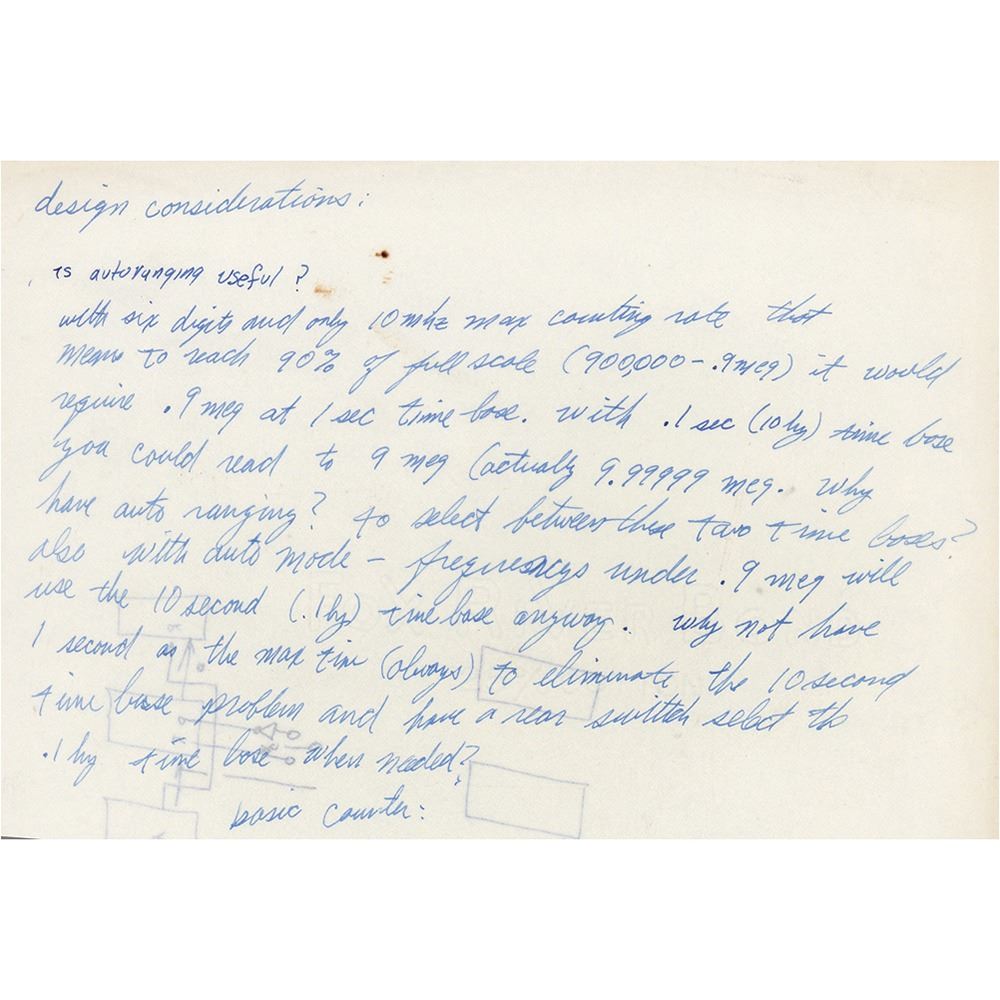 design considerations:
is autoranging useful?
with six digits and only 10 mhz max counting rate that
means to reach 90% of full scale (900,000 - .9 meg) it would
require .9 meg at 1 sec time base. with .1 sec (10 hy) time base
you could read to 9 meg (actually 9.99999 meg. why
have auto ranging? to select between these two time bases?
also with auto mode - frequencys under .9 meg will
use the 10 second (.1 hy) time base anyway. why not have
1 second as the max time (always) to eliminate the 10 second
time base problem and have a rear switch select th
.1 hy time base when needed?
basic counter: